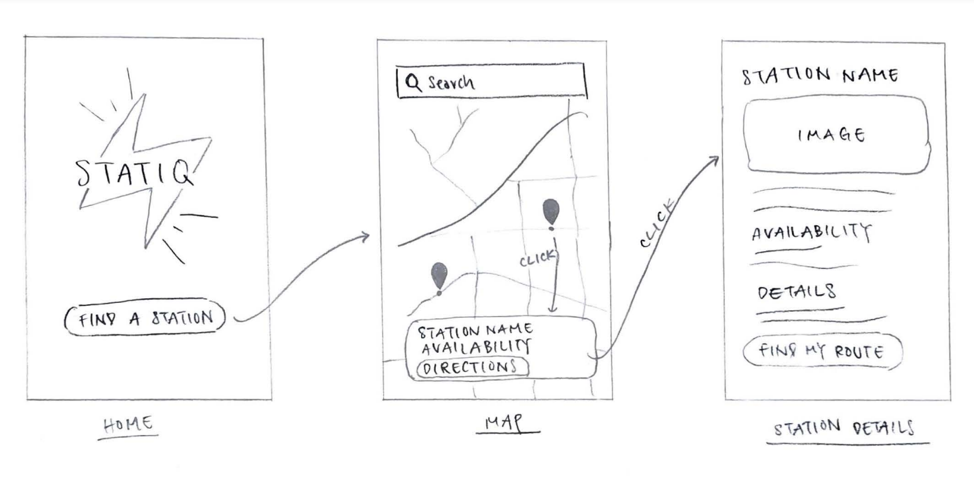 STATIQ
FIND A STATION
HOME
Search
CLICK
STATION NAME
AVAILABILITY
DIRECTIONS
MAP
CLICK
STATION NAME
IMAGE
AVAILABILITY
DETAILS
FIND MY ROUTE
STATION DETAILS